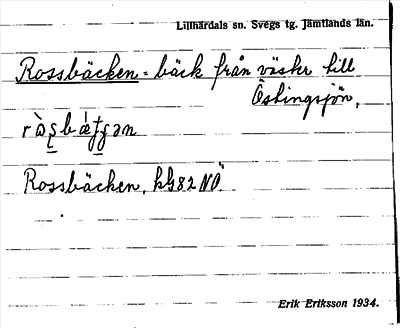 Lillhärdals sn. Svegs tg. Jämtlands län.
Rossbäcken = bäck från väster till
Östingsjön,
Rossbäcken, kb 82 NO.
Erik Eriksson 1934.